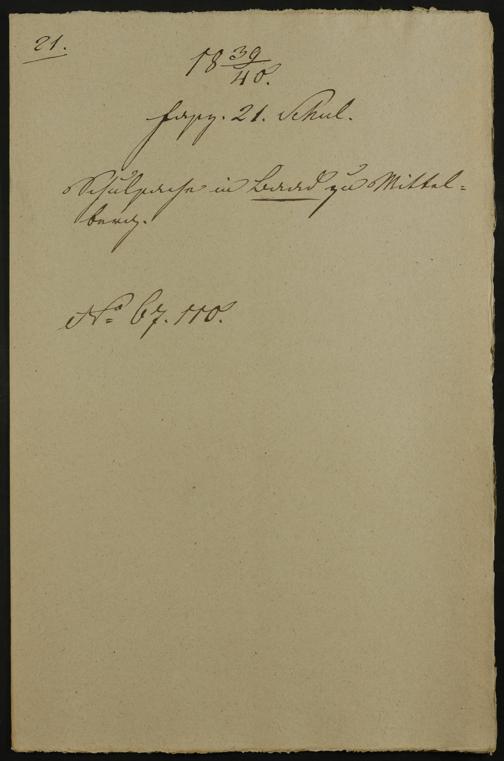 21.
18 39/40.
Fasz. 21. Schul.
Schulsache in Baad zu Mittel=
berg.
No 67. 110.